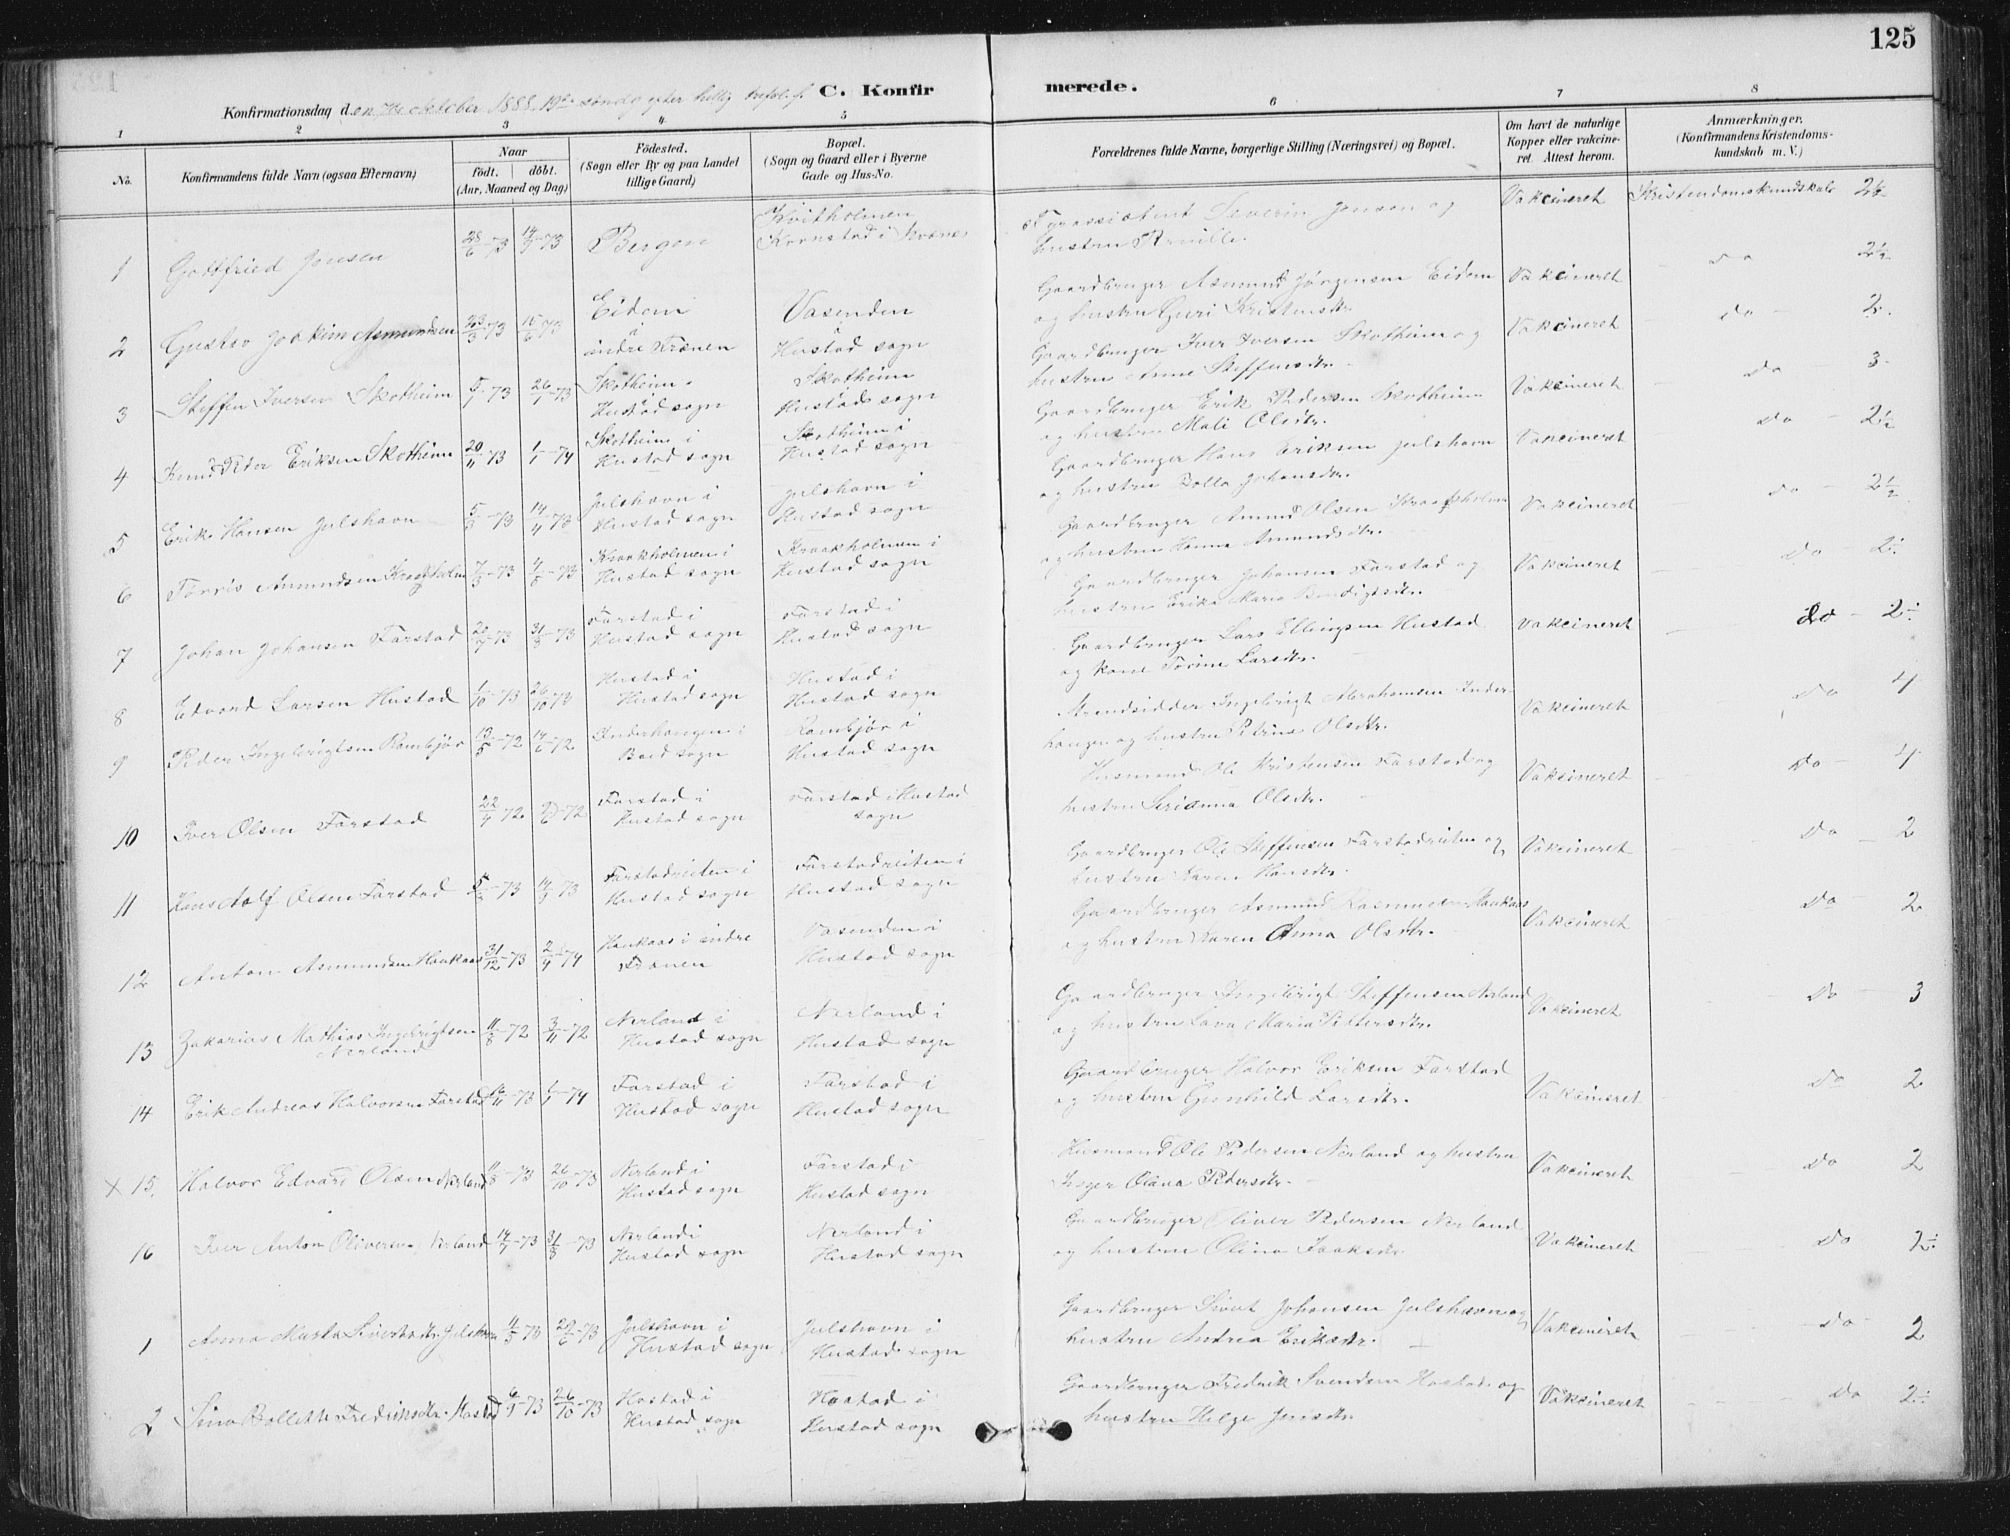 125
C. Konfirmerede.
Konfirmationsdag den 7de October 1888. 19de søndag efter hellig
1 2 3 4 5 6 7 8
No. Konfirmandens fulde Navn (ogsaa Efternavn) Naar födt. döbt. (Aar, Maaned og Dag) Födested. (Sogn eller By og paa Landet tillige Gaard) Bopæl. (Sogn og Gaard eller i Byerne Gade og Hus-No. Forældrenes fulde Navne, borgerlige Stilling (Næringsvei) og Bopæl. Om havt de naturlige Kopper eller vakcineret. Attest herom. Anmærkninger. (Konfirmandens Kristendomskundskab m. V.)
1 Gottfried Jensen 28/6-73 14/9-73 Bergen Kvitholmen Kornstad i Kværnes Fyrassistent Severin Jensen og hustru Vakcineret Kristendomskundskab 2½
2 Gustav Joakim Asmundsen 23/3-73 15/6-73 Eidem i indre Frænen Vasenden i Hustad sogn Gaardbruger Asmund Jørgensen Eidem og hustru Guri Kristensdtr. Vakcineret do 2½
3 Steffen Iversen Skotheim 5/7-73 26/7-73 Skotheim i Hustad sogn Skotheim Hustad sogn Gaardbruger Iver Iversen Skotheim og hustru Anne Steffensdtr. Vakcineret do 2
4 Knud Peder Eriksen Skotheim 20/11-73 1/1-74 Skotheim i Hustad sogn Skotheim i Hustad sogn Gaardbruger Erik Pedersen Skotheim og hustru Mali Olsdtr. Vakcineret do 3
5 Erik Hansen Julshavn 5/3-73 14/4-73 Julshavn i Hustad sogn Julshavn i Hustad sogn Gaardbruger Hans Eriksen Julshavn og hustru Johansdtr. Vakcineret do 2½
6 Tørris Amundsen Kraakholm 7/3-73 4/5-73 Kraakholmen i Hustad sogn Kraakholmen i Hustad sogn Gaardbruger Amund Olsen Kraakholm og hustru Hanna Amundsdtr. Vakcineret do 2½
7 Johan Johansen Farstad 20/7-73 31/8-73 Farstad i Hustad sogn Farstad i Hustad sogn Gaardbruger Johansen Farstad og hustru Erika Maria Bendigtsdtr. Vakcineret do 2
8 Edvard Larsen Hustad 1/10-73 26/10 73 Hustad i Hustad sogn Hustad i Hustad sogn Gaardbruger Lars Ellingsen Hustad og kone Larsdtr. Vakcineret do 2
9 Peder Ingebrigtsen Rambjør 13/5-72 14/6-72 Inderhaugen i Bod sogn Rambjør i Hustad sogn Strandsidder Ingebrigt Abrahamsen Inderhaugen og hustru Petrine Olsdtr. Vakcineret do 4
10 Iver Olsen Farstad 22/4-72 -72 Farstad i Hustad sogn Farstad i Hustad sogn Husmand Ole Kristensen Farstad og hustru Serianna Olsdtr. Vakcineret do 4
11 Hans Adolf Olsen Farstad -73 14/9-73 Farstadreiten i Hustad sogn Farstadreiten i Hustad sogn Gaardbruger Ole Steffensen Farstadreiten og hustru Karen Hansdtr. Vakcineret do 2
12 Anton Asmundsen Haukaas 31/12-73 2/4-74 Haukaas i indre Frænen Vasenden i Hustad sogn Gaardbruger Asmund Rasmussen Haukaas og hustru Karen Anna Olsdtr. Vakcineret do 2
13 Zakarias Mathias Ingebrigtsen Nerland 11/8-72 3/11-72 Nerland i Hustad sogn Nerland i Hustad sogn Gaardbruger Ingebrigt Steffensen Nerland og hustru Lava Maria Pettersdtr. Vakcineret do 3
14 Erik Andreas Halvorsen Farstad 16/11-73 1/1-74 Farstad i Hustad sogn Farstad i Hustad sogn Gaardbruger Halvor Eriksen Farstad og hustru Gunhild Larsdtr. Vakcineret do 2
x 15. Halvor Edvard Olsen Nerland 11/8-73 26/10-73 Nerland i Hustad sogn Farstad i Hustad sogn Husmand Ole Pedersen Nerland og hustru Inger Oliana Pedersdtr. Vakcineret do 2
16 Iver Anton Oliversen Nerland 14/7-73 31/8-73 Nerland i Hustad sogn Nerland i Hustad sogn Gaardbruger Oliver Pedersen Nerland og hustru Olina Isaksdtr Vakcineret do 2
1 Anna Marta Sivertsdtr. Julshavn 4/5-73 29/6-73 Julshavn i Hustad sogn Julshavn i Hustad sogn Gaardbruger Sivert Johansen Julshavn og hustru Andrea Eriksdtr. Vakcineret do 2
2 Bollette Fredriksdtr. Hastad 6/9-73 26/10-73 Hastad i Hustad sogn Hastad i Hustad sogn Gaardbruger Fredrik Svendsen Hastad og hustru Helge Jensdtr. Vakcineret do 2